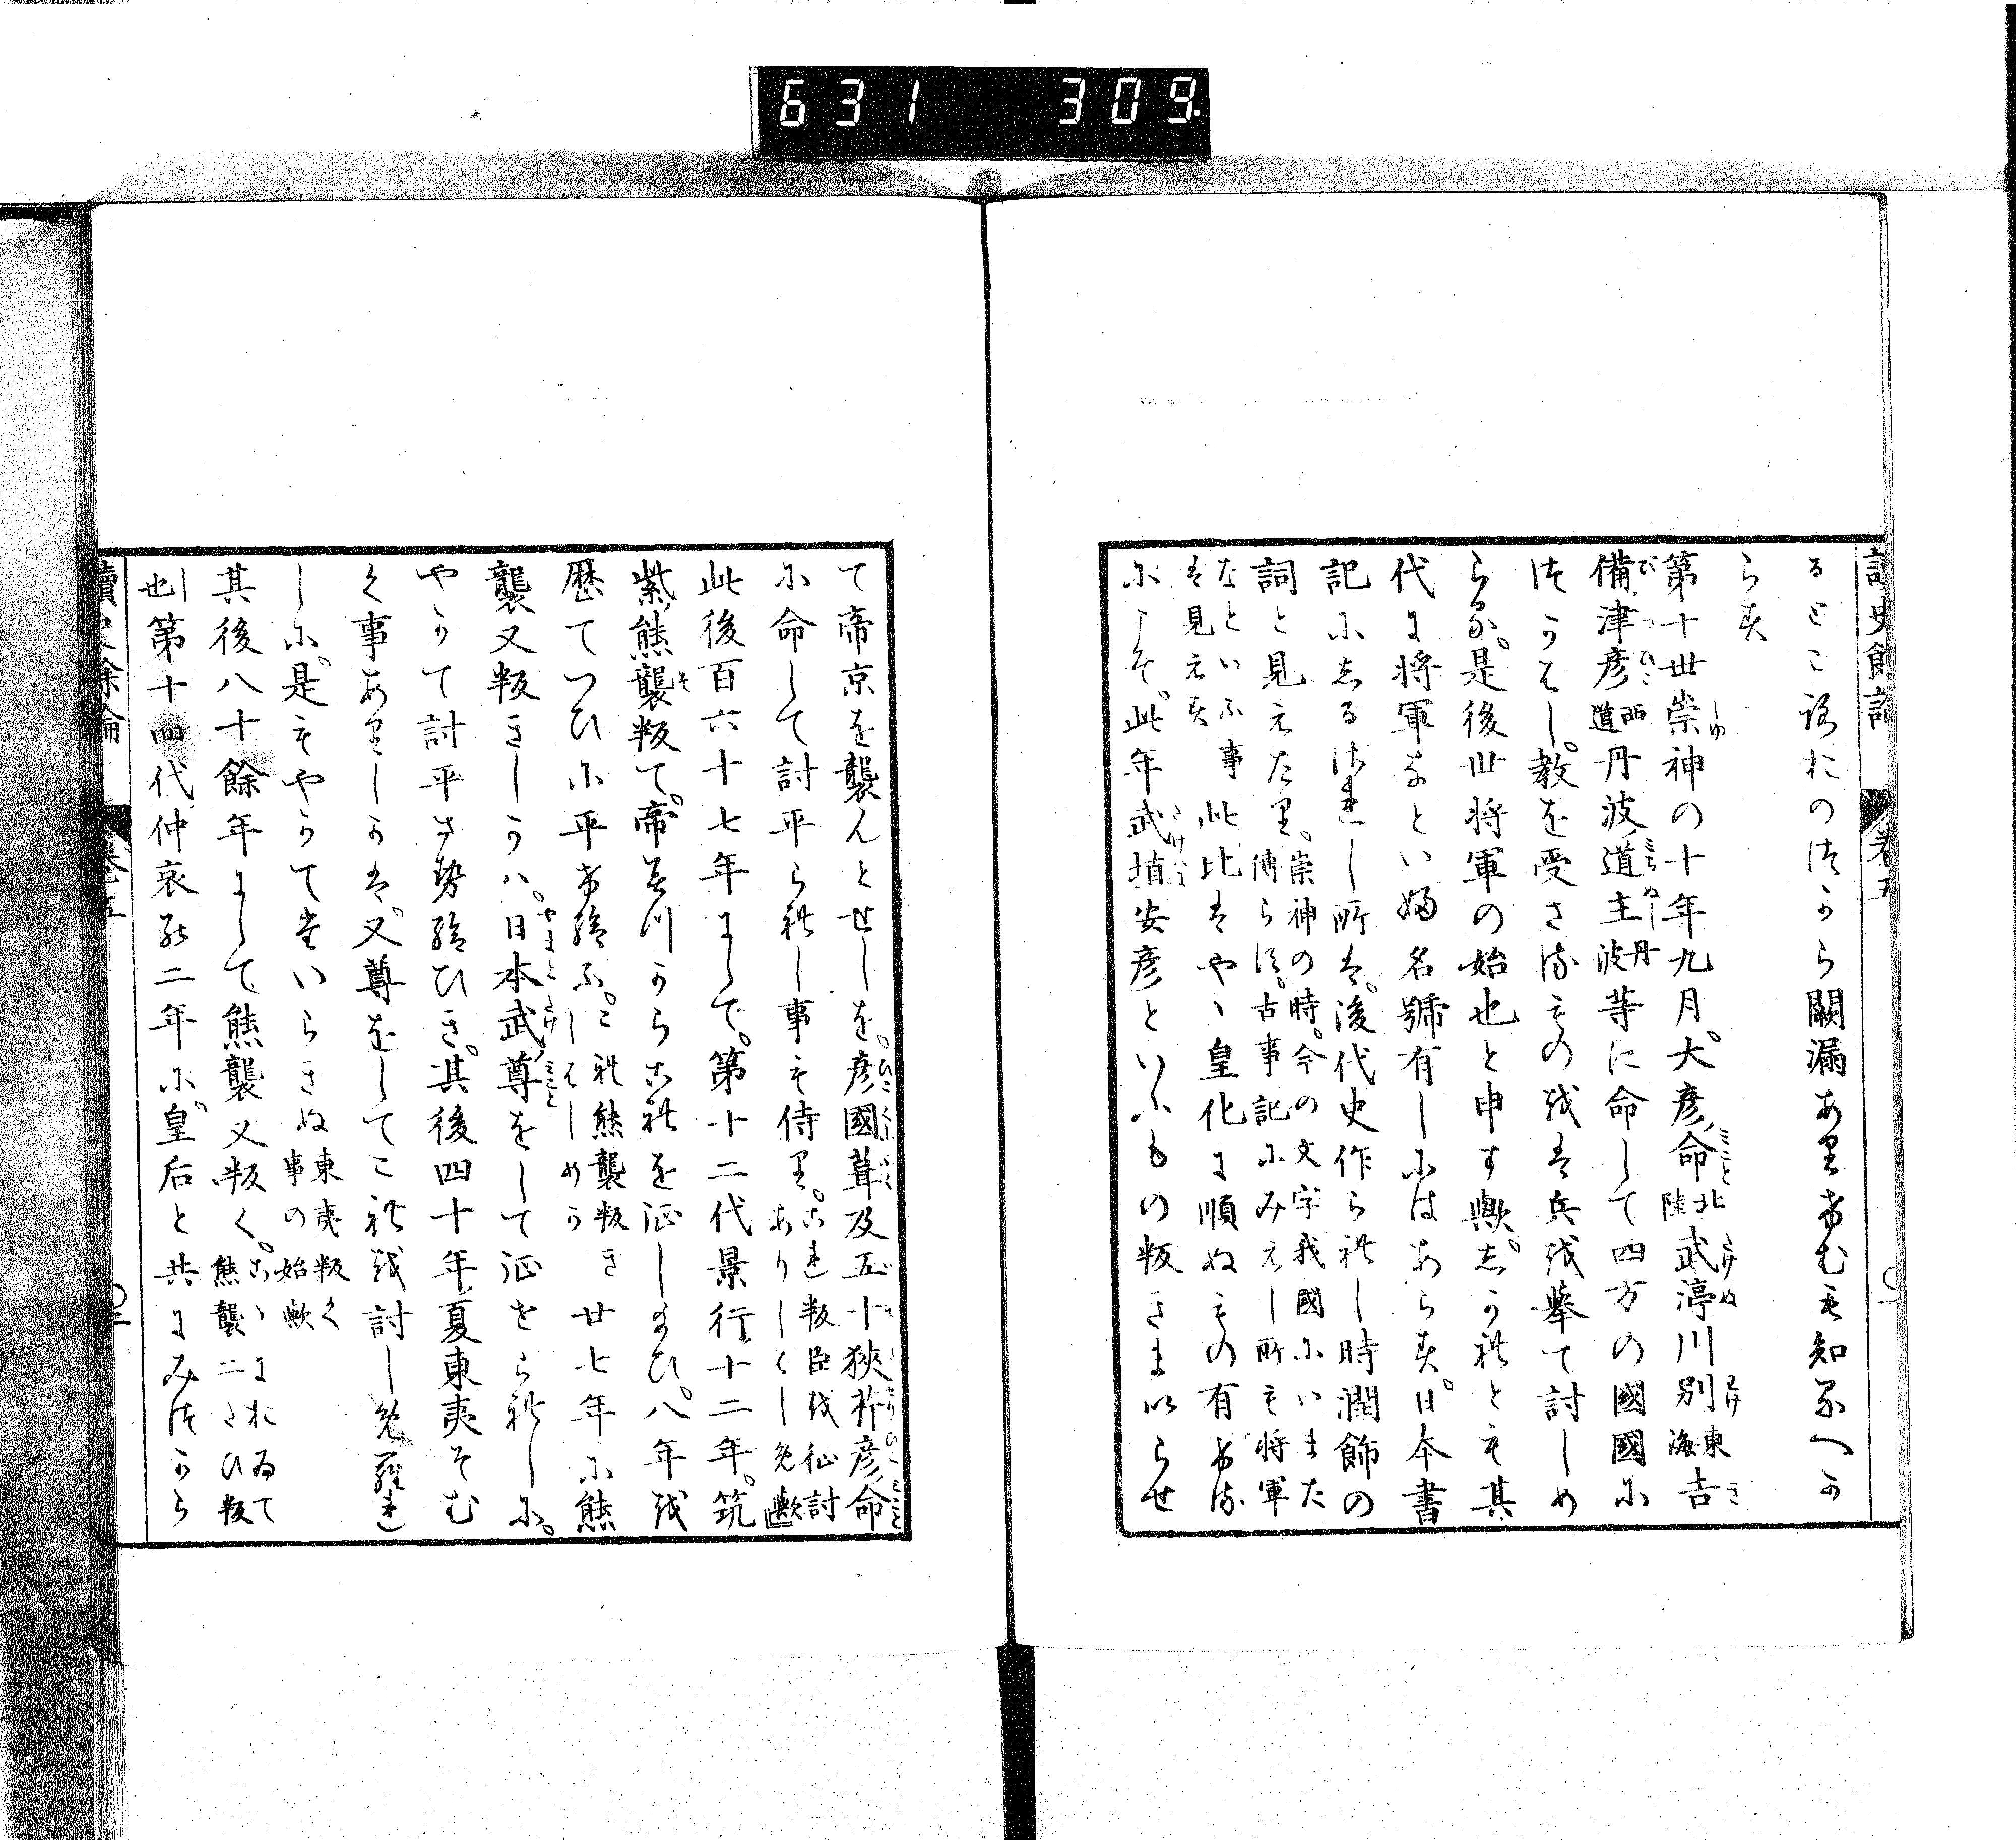 631 309
讀史餘論 卷五
るところおのつから闕漏ありなむも知るへか
らす
第十世崇神の十年九月。大彦命北陸武渟川別東海吉
備津彦西道丹波道主丹波等に命して四方の國國に
つかはし。教を受さるものをは兵を擧て討しめ
らる。是後世將軍の始也と申す歟。しかれとも其
代に將軍なといふ名號有しにはあらす。日本書
記にしるされし所は。後代史作られし時潤飾の
詞と見えたり。崇神の時。今の文字我國にいまた傳らす。古事記にみえし所も將軍
なといふ事は見えす 此比はやゝ皇化に順ぬもの有ける
にこそ。此年武埴安彦といふもの叛きまいらせ
て帝京を襲んとせしを。彦國葺及五十狹芹彦命
に命して討平られし事も侍り。これ叛臣を征討ありしはしめ歟
此後百六十七年にして。第十二代景行十二年。筑
紫熊襲叛て。帝みつからこれを征し給ひ。八年を
歴てつひに平け給ふ。これ熊襲叛きしはしめか 廿七年に熊
襲又叛きしかハ。日本武尊をして征せられしに。
やかて討平け給ひき。其後四十年夏東夷そむ
く事ありしかは。又尊をしてこれを討しめられ
しに。是もやかてたいらきぬ東夷叛く事の始歟
其後八十餘年にして熊襲又叛く。こゝにおゐて熊襲二たひ叛
し也第十四代仲哀の二年に。皇后と共にみつから
讀史餘論 卷五 〇二